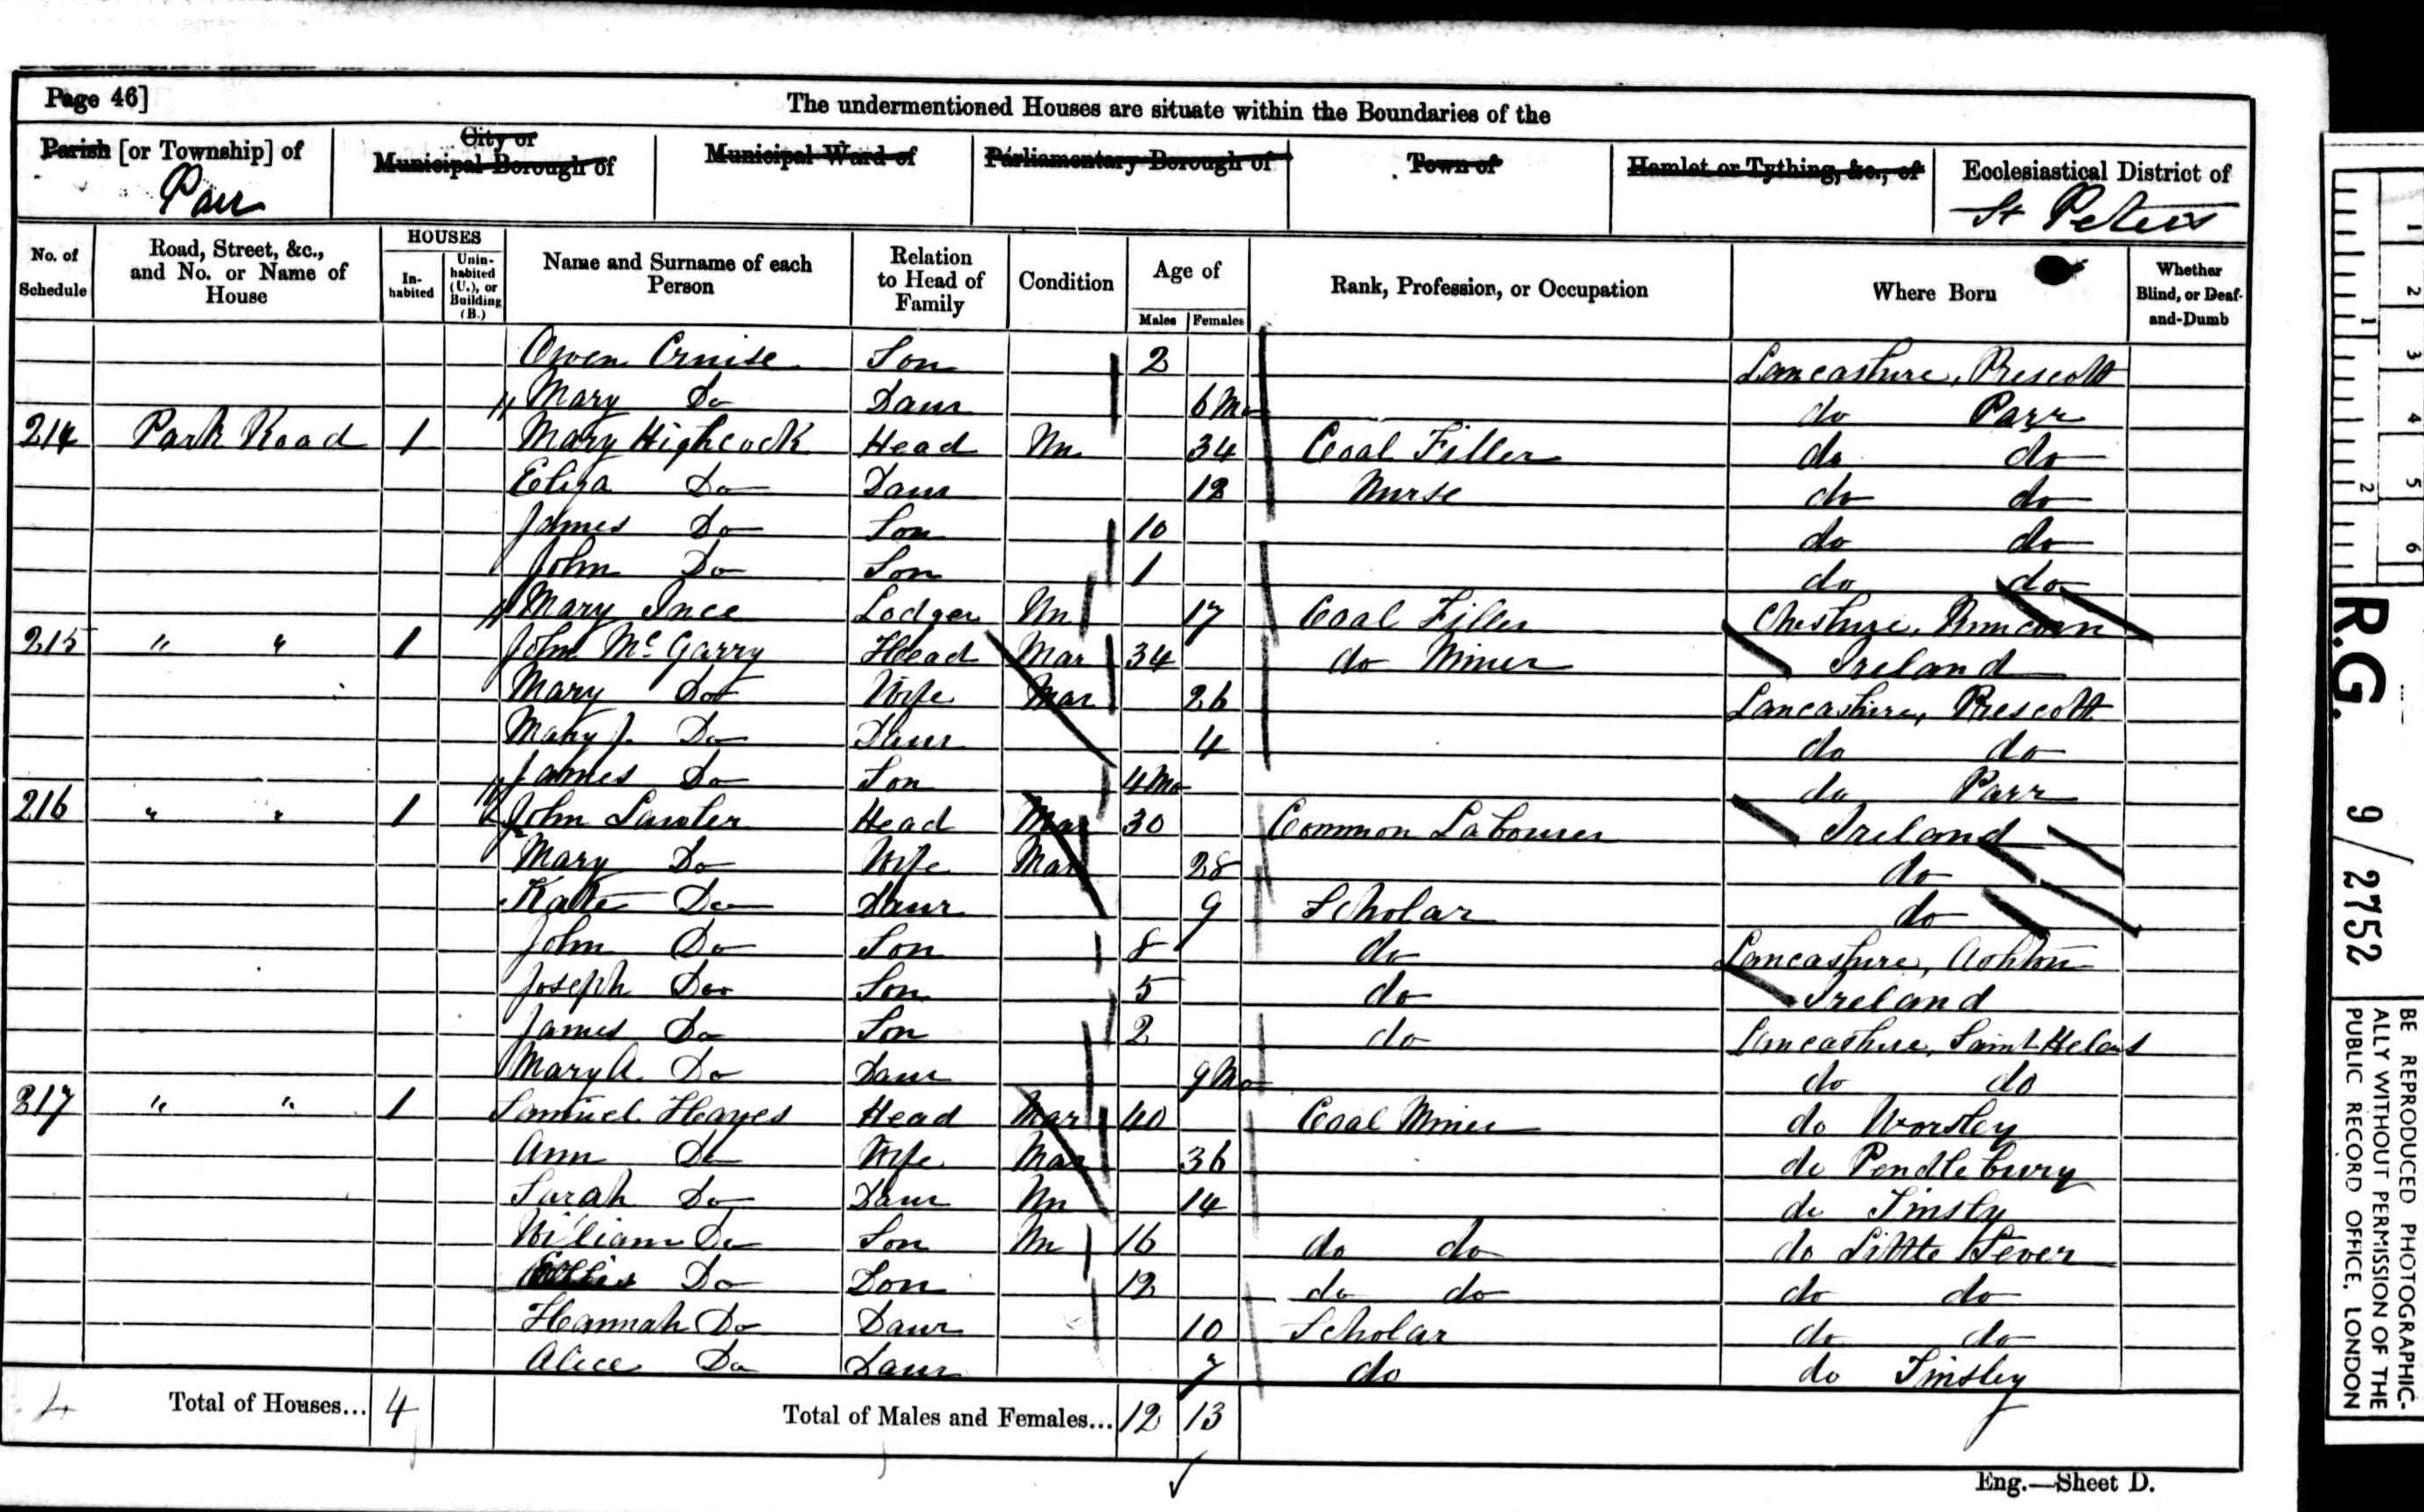 Page 46]
The undermentioned Houses are situate within the Boundaries of the
Parish [or Township] of City or Municipal Borough of Municipal Ward of Parliamentary Borough of Town of Hamlet or Tything, &c., of Ecclesiastical District of
Parr St Peters
No. of Schedule Road, Street, &c., and No. or Name of House HOUSES In-habited Unin-habited (U.), or Building (B.) Name and Surname of each Person Relation to Head of Family Condition Age of Males Females Rank, Profession, or Occupation Where Born Whether Blind, or Deaf-and-Dumb
Owen Cruise Son 2 Lancashire, Prescott
Mary Do Daur 6 Mo do Parr
214 Park Road 1 Mary Highcock Head Un 34 Coal Filler do do
Eliza Do Daur 12 Nurse do do
James Do Son 10 do do
John Do Son 1 do do
Mary Ince Lodger Un 17 Coal Filler Cheshire, Runcorn
215 " " 1 John McGarry Head Mar 34 do Miner Ireland
Mary Do Wife Mar 26 Lancashire, Prescott
Mary J. Do Daur 4 do do
James Do Son 4 Mo do Parr
216 " " 1 John Lawler Head Mar 30 Common Labourer Ireland
Mary Do Wife Mar 28 do
Kate Do Daur 9 Scholar do
John Do Son 8 do Lancashire, Ashton
Joseph Do Son 5 do Ireland
James Do Son 2 do Lancashire, Saint Helens
Mary A. Do Daur 9 Mo do do
217 " " 1 Samuel Hayes Head Mar 40 Coal Miner do Worsley
Ann Do Wife Mar 36 do Pendlebury
Sarah Do Daur Un 14 do Tinsly
William Do Son Un 16 do do do Little Lever
Ellis Do Son 12 do do do do
Hannah Do Daur 10 Scholar do do
Alice Do Daur 7 do do Tinsley
4 Total of Houses... 4 Total of Males and Females... 12 13
Eng.—Sheet D.
1 2 3 4 5 6
1 2
R.G. 9/2752
BE REPRODUCED PHOTOGRAPHIC-
ALLY WITHOUT PERMISSION OF THE
PUBLIC RECORD OFFICE, LONDON